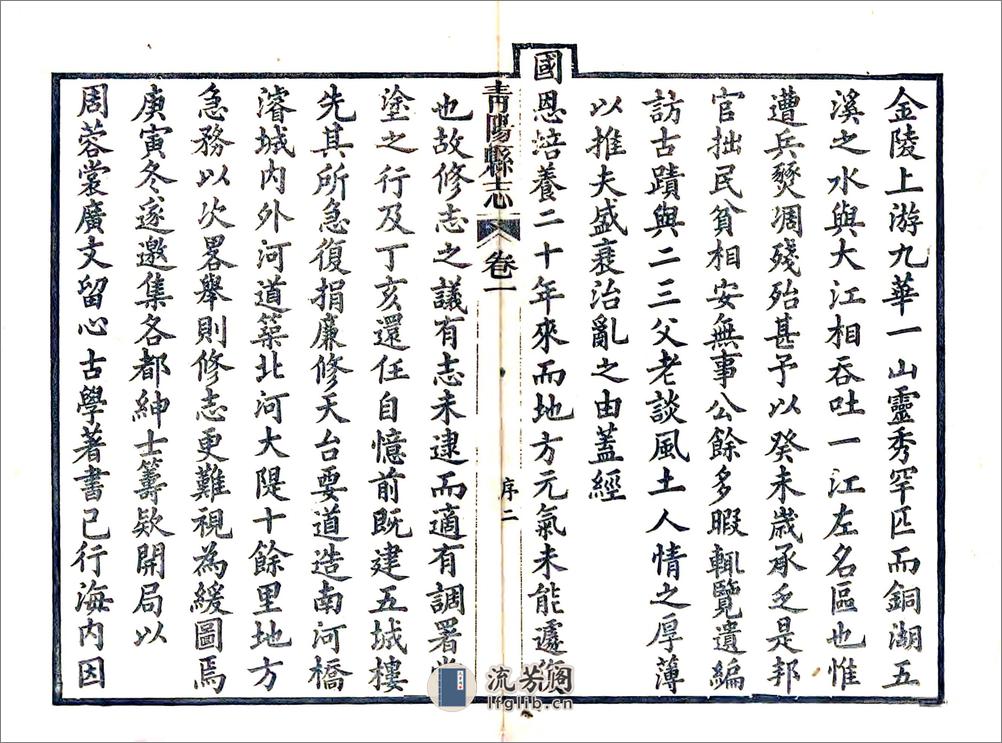 金陵上游九華一山靈秀罕匹而銅湖五
溪之水與大江相吞吐一江左名區也惟
遭兵燹凋殘殆甚予以癸未歲承乏是邦
官拙民貧相安無事公餘多暇輒覽遺編
訪古蹟與二三父老談風土人情之厚薄
以推夫盛衰治亂之由蓋經
國恩培養二十年來而地方元氣未能遽
青陽縣志 卷一 序二
也故修志之議有志未逮而適有調署
塗之行及丁亥還任自憶前既建五城樓
先其所急復捐廉修天台要道造南河橋
濬城內外河道築北河大隄十餘里地方
急務以次畧舉則修志更難視為緩圖焉
庚寅冬遂邀集各都紳士籌欵開局以
周蓉裳廣文留心古學著書已行海內因
流芳阁
lfglib.cn